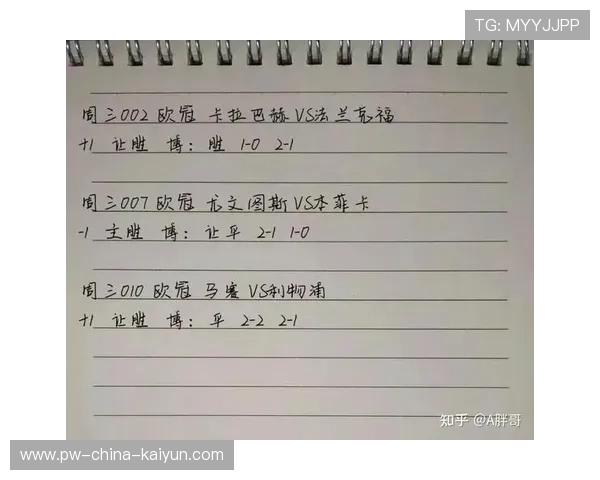 TG: MYYJJPP
周三002 欧冠 卡拉巴赫VS法兰克福
+1 让胜 博: 胜 1-0 2-1
周三007 欧冠 尤文图斯VS本菲卡
-1 主胜 博: 让平 2-1 1-0
周三010 欧冠 马赛 VS利物浦
+1 让胜 博: 平 2-2 2-1
知乎 @A胖哥
www.pw-china-kaiyun.com